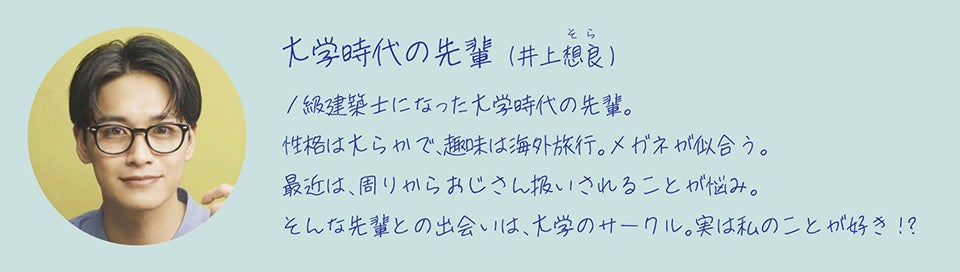 大学時代の先輩（井上想良）
そら
1級建築士になった大学時代の先輩。
性格は大らかで、趣味は海外旅行。メガネが似合う。
最近は、周りからおじさん扱いされることが悩み。
そんな先輩との出会いは、大学のサークル。実は私のことが好き！？